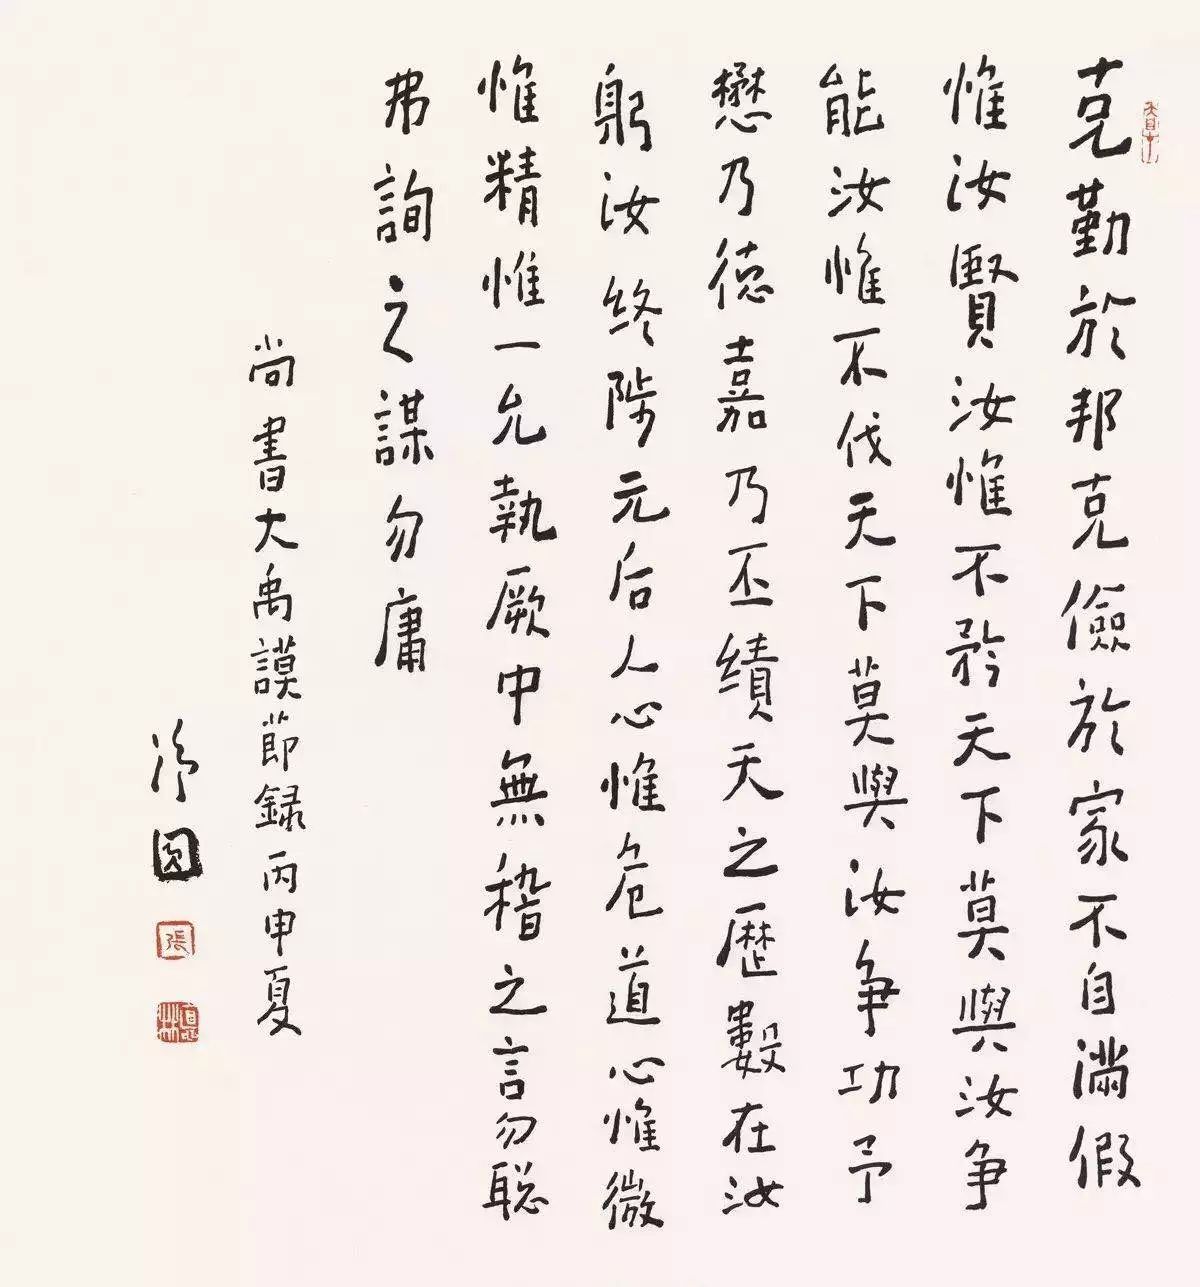 克勤於邦克儉於家不自滿假
惟汝賢汝惟不矜天下莫與汝爭
能汝惟不伐天下莫與汝爭功予
懋乃德嘉乃丕績天之歷數在汝
躬汝終陟元后人心惟危道心惟微
惟精惟一允執厥中無稽之言勿聪
弗詢之謀勿庸
尚書大禹謨節録丙申夏
淨圓
張